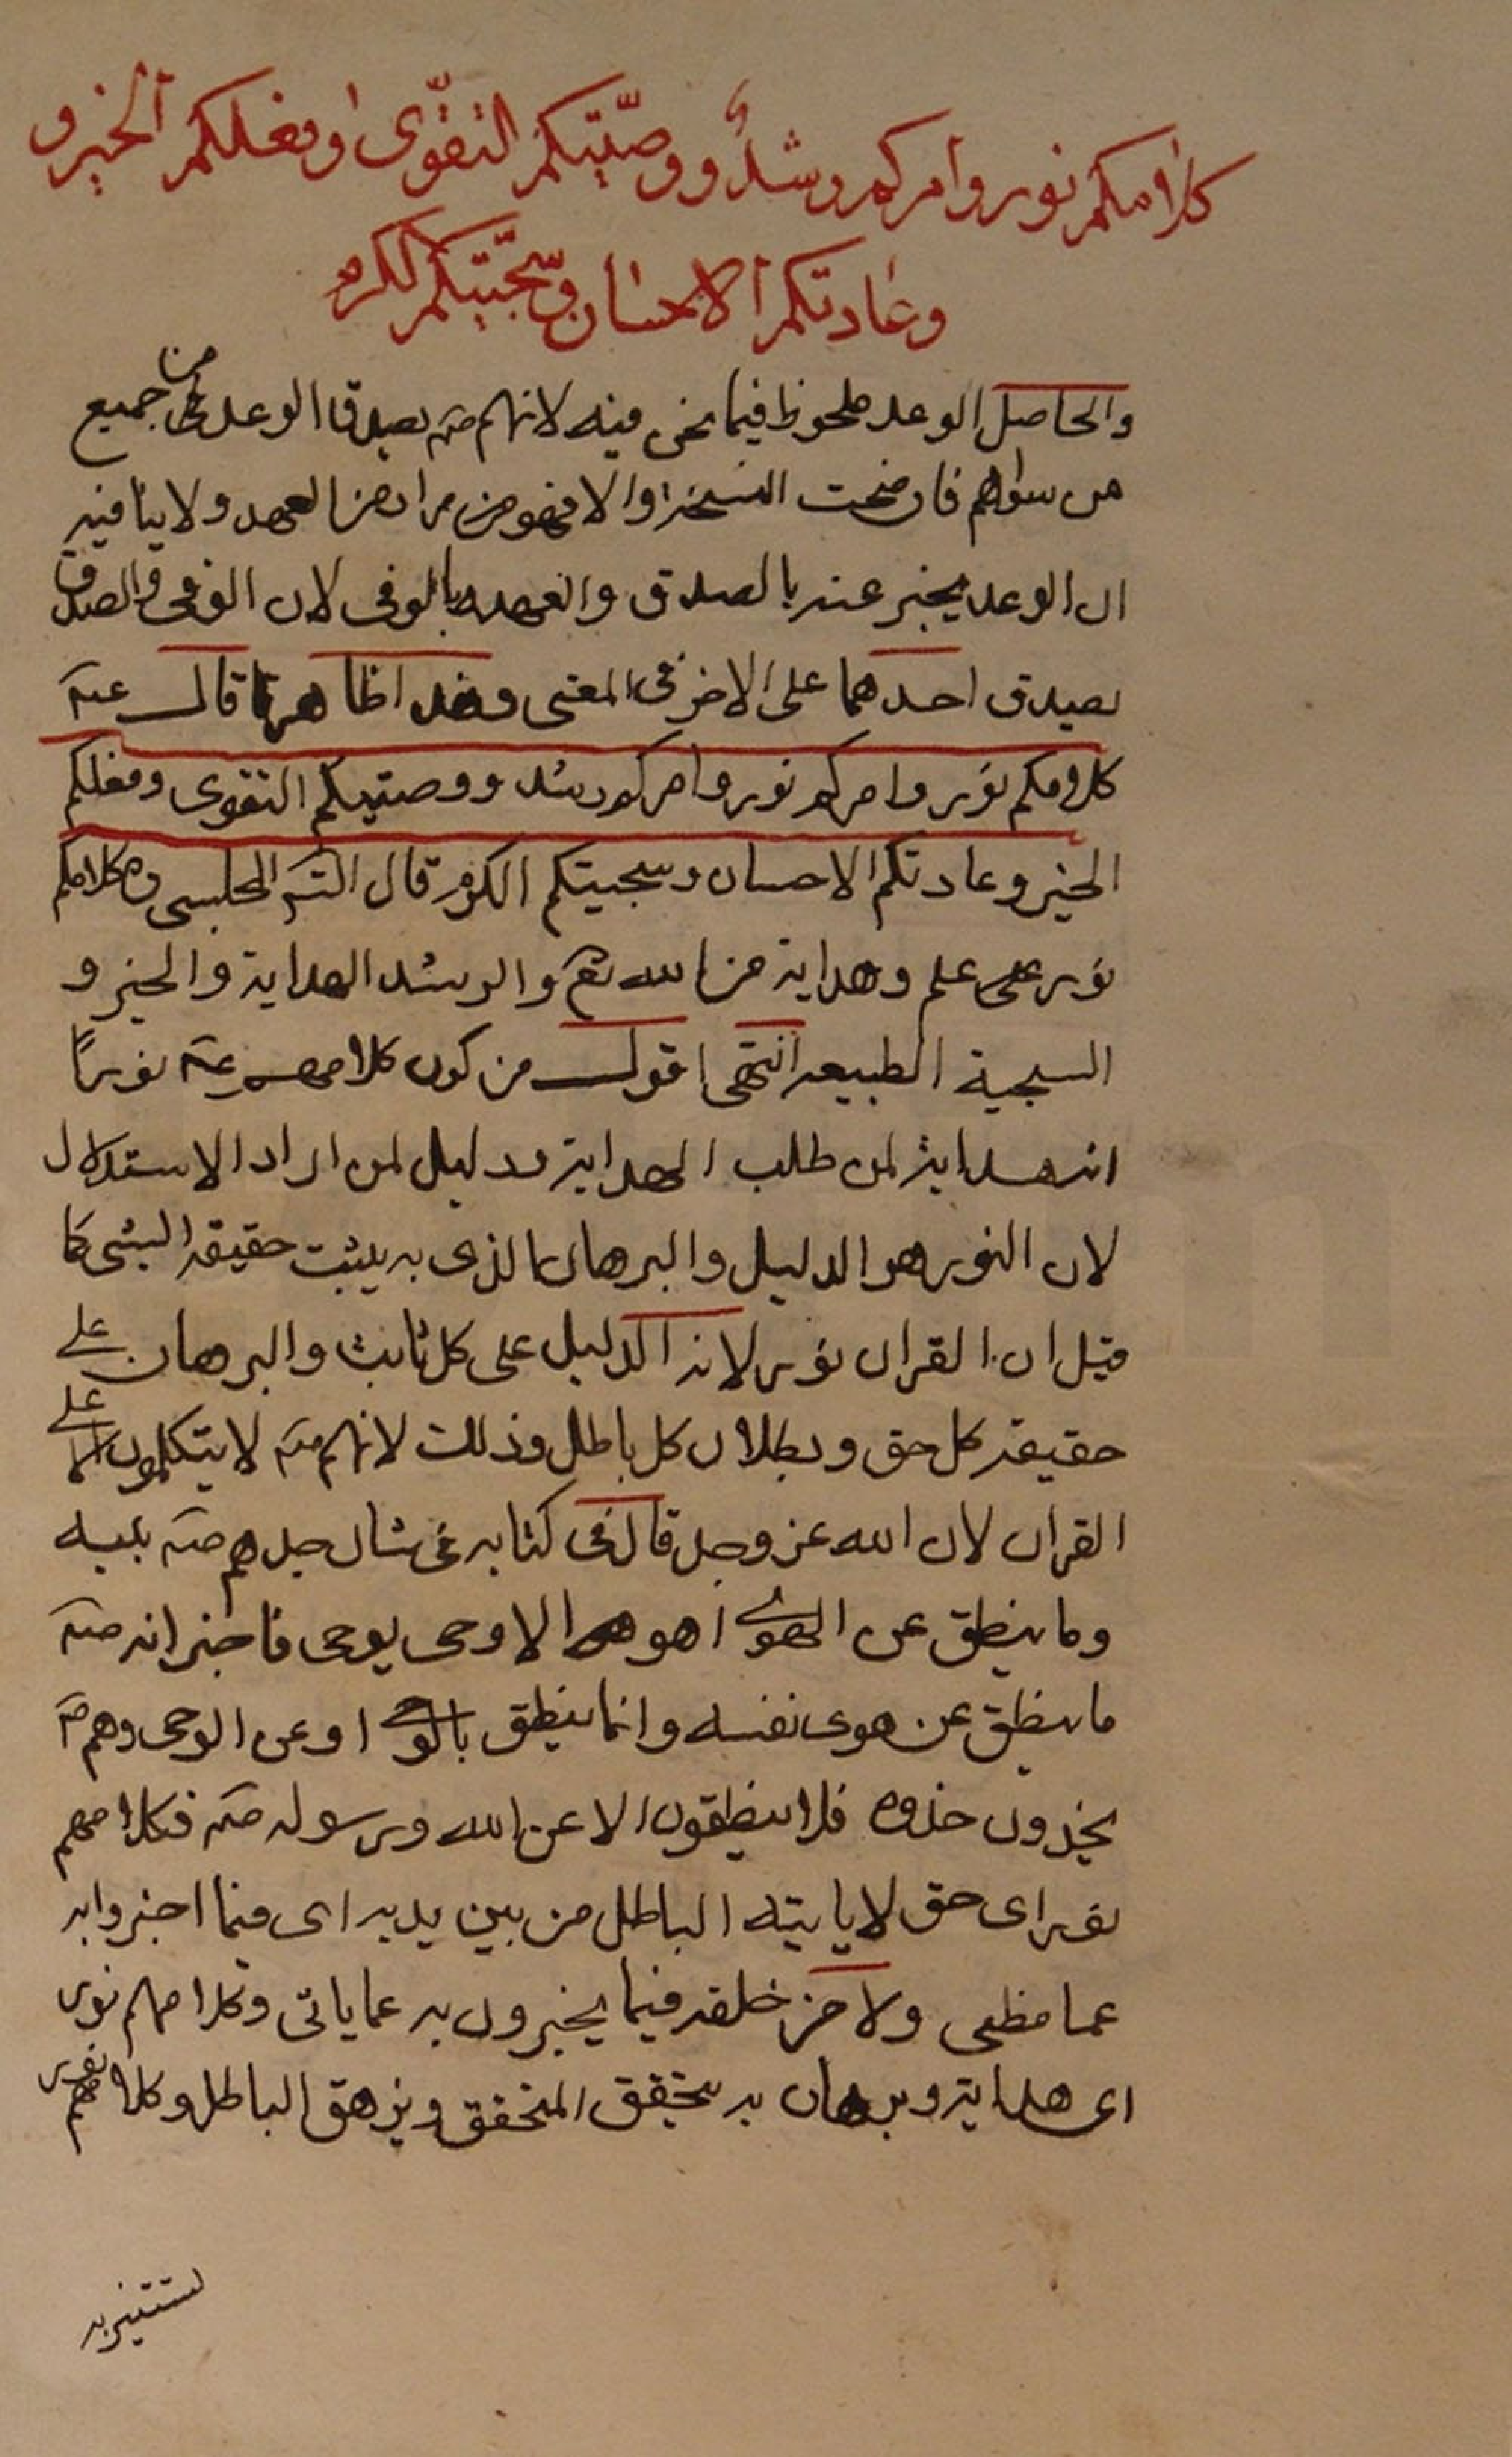 كلامكم نور وامركم رشدٌ ووصّيتكم التقوّى وفعلكم الخير و
وعادتكم الاحسان وسجّيتكم الكرم
والحاصل الوعد ملحوظ فيما نحن فيه لانهم صدق الوعد من جميع
من سواهم فان صحت النسخة والا فهو من مرادهنا العهد ولا ينافيه
ان الوعد يخبر عنه بالصدق والعهد بالوفى لان الوفى والصدق
يصدق احدهما على الاخر فى المعنى وهذا ظاهر قال عته
كلامكم نور وامركم نور وامركم رشد ووصيتكم التقوى وفعلكم
الخير وعادتكم الاحسان وسجيتكم الكرم قال الش المجلسى ره كلامكم
نور على علم وهداية من الله تع والرشد الهداية والخير و
السجية الطبيعه انتهى اقول من كون كلامهم عته نورًا
انه هداية لمن طلب الهداية ودليل لمن اراد الاستدلال
لان النور هو الدليل والبرهان الذى به يثبت حقيقة الشى كما
قيل ان القران نور لانه الدليل على كل ثابت والبرهان على
حقيقة كل حق وبطلان كل باطل وذلك لانهم صته لا يتكلمون الا على
القران لان الله عز وجل قال فى كتابه فى شان جدهم صته نبيه
وما ينطق عن الهوى ا هو الا وحى يوحى فاخبر انه صته
ما ينطق عن هوى نفسه وانما ينطق بالوحى او عن الوحى وهم صته
يحذون حذوه فلا ينطقون الا عن الله ورسوله صته فكلامهم
نور اى حق لا ياتيه الباطل من بين يديه اى فيما اخبروا به
عما مضى ولا من خلفه فيما يخبرون به عما ياتى وكلامهم نور
اى هداية وبرهان به يتحقق المتحقق ويزهق الباطل وكلامهم نور
تستنير به